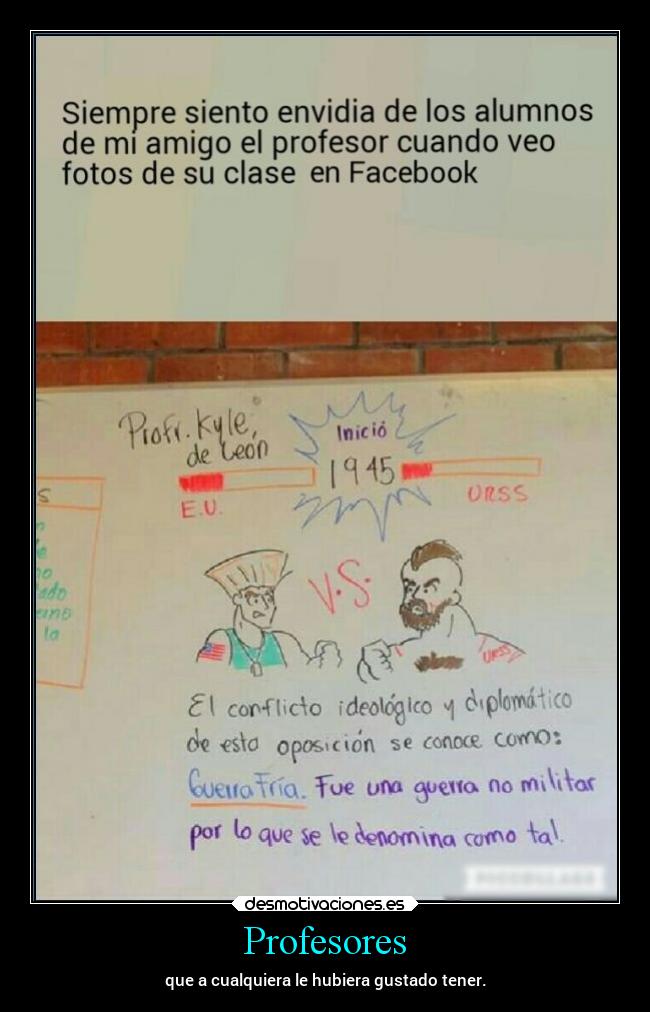 Siempre siento envidia de los alumnos
de mi amigo el profesor cuando veo
fotos de su clase en Facebook
Profr. Kyle,
de León
Inició
1945
E.U.
URSS
V.S.
URSS
S
n
e
no
ado
eano
la
El conflicto ideológico y diplomático
de esta oposición se conoce como:
Guerra Fría. Fue una guerra no militar
por lo que se le denomina como tal.
desmotivaciones.es
Profesores
que a cualquiera le hubiera gustado tener.